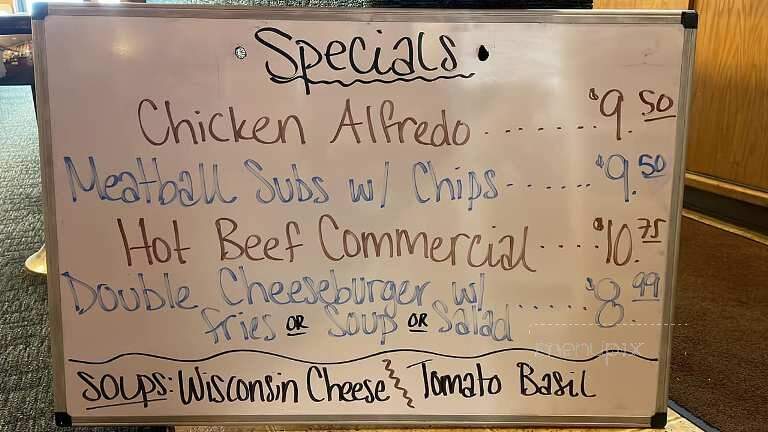 Specials
Chicken Alfredo ....... $9.50
Meatball Subs w/ Chips ...... $9.50
Hot Beef Commercial .... $10.75
Double Cheeseburger w/ ...... $8.99
fries OR Soup OR Salad
menupix
SOUPS: Wisconsin Cheese Tomato Basil